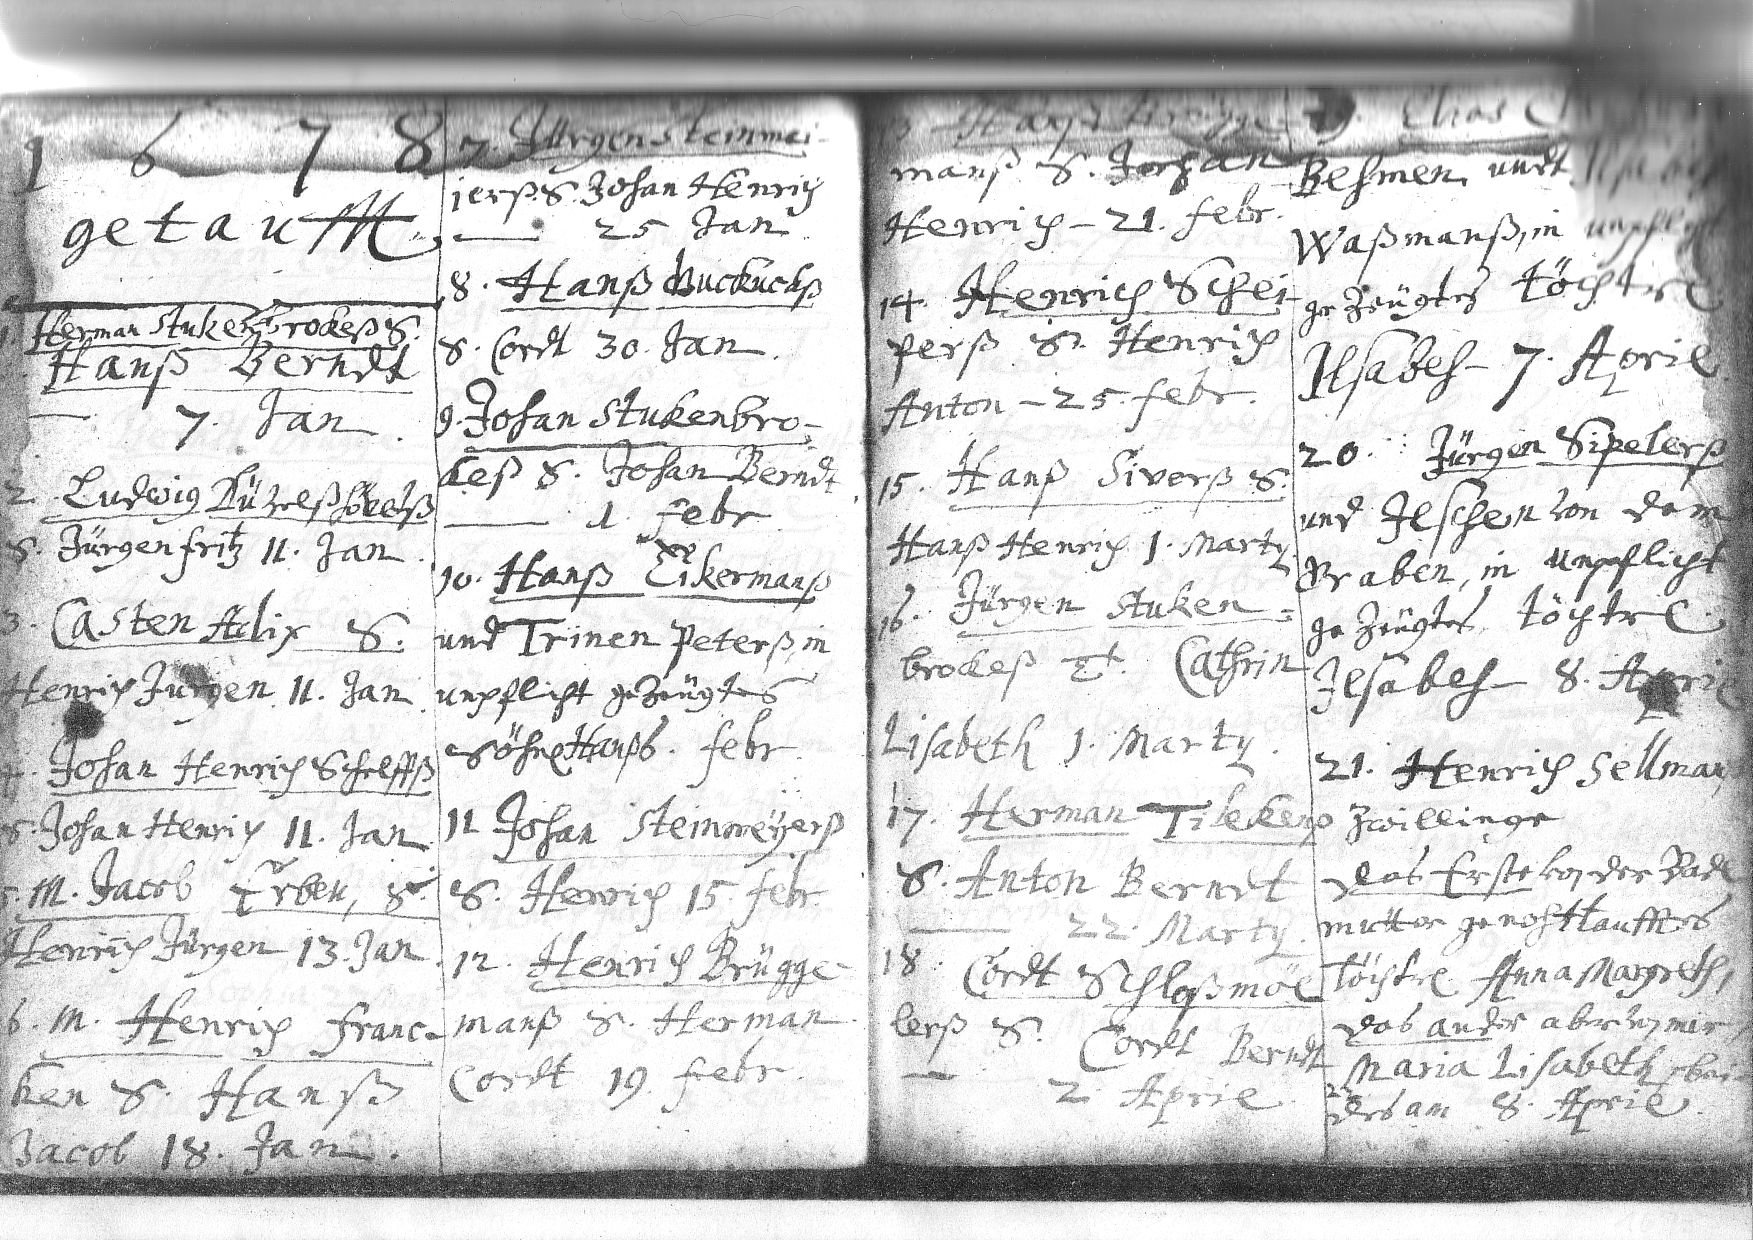 1 6 7 8
getaufft
1. Herman Stukenbrokeß S.
Hanß Berndt
— 7. Jan.
2. Ludewig
S. Jürgen Fritz 11. Jan.
3. Casten Alix S.
Henrich Jurgen 11. Jan
4. Johan Henrich
S. Johan Henrich 11. Jan
5. M. Jacob Erben, S.
Henrich Jürgen 13. Jan.
6. M. Henrich Franc-
ken S. Hanß
Jacob 18. Jan.
7. Jürgen Steinmei-
jerß S. Johan Henrich
— 25 Jan
8. Hanß Kuckuckß
S. Cordt 30. Jan.
9. Johan Stukenbro-
keß S. Johan Berndt.
— 1 Febr
10. Hanß Eikermanß
und Trinen Peterß, in
unpflicht gezeügtes
Söhne Hanß 6. Febr
11 Johan Steinmeyerß
S. Henrich 15 Febr
12. Henrich Brügge-
manß S. Herman
Cordt 19. Febr.
13 Hanß Brügge-
manß S. Johan
Henrich – 21. Febr.
14. Henrich Schei-
perß S. Henrich
Anton – 25. Febr.
15. Hanß Siverß S.
Hanß Henrich 1. Marty.
16. Jürgen Stuken-
brokeß T. Cathrin
Lisabeth 1. Marty.
17. Herman Tilekenß
S. Anton Berndt
— 22. Marty.
18 Cordt Schloßmöl
lerß S. Cordt Berndt
— 2. Aprile
19. Elias
Behmen, undt
Waßmanß, in unpflicht
gezeügtes Töchtre
Ilsabeh – 7. April
20. Jürgen Sipelerß
und Ilschen von dem
Graben, in unpflicht
gezeügtes Töchtre
Ilsabeh – 8. April
21. Henrich Sellman
Zwillinge
das Erste von der Bade
mutter genohttaufftes
Töchtre Anna Margreth,
das ander aber von mir,
Maria Lisabeth, bei-
des am 8. Aprile.